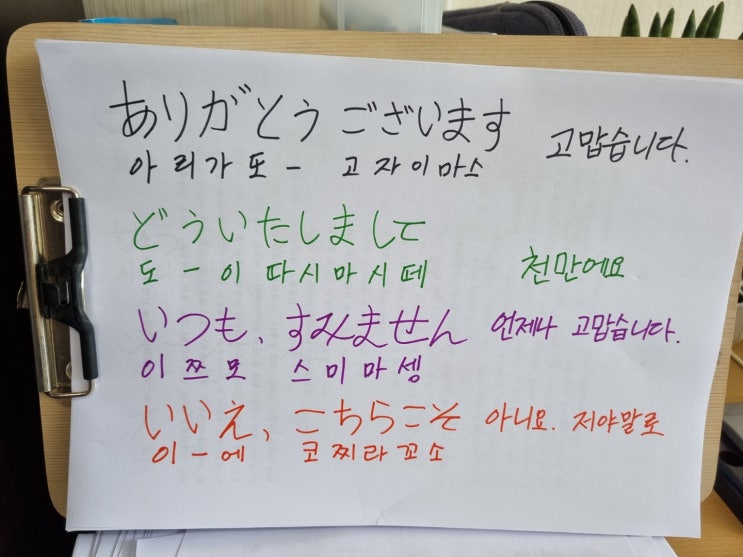 ありがとう ございます 고맙습니다.
아리가또- 고자이마스
どういたしまして
도-이따시마시떼 천만에요
いつも、すみません 언제나 고맙습니다.
이쯔모 스미마셍
いいえ、こちらこそ 아니요. 저야말로
이-에 코찌라꼬소